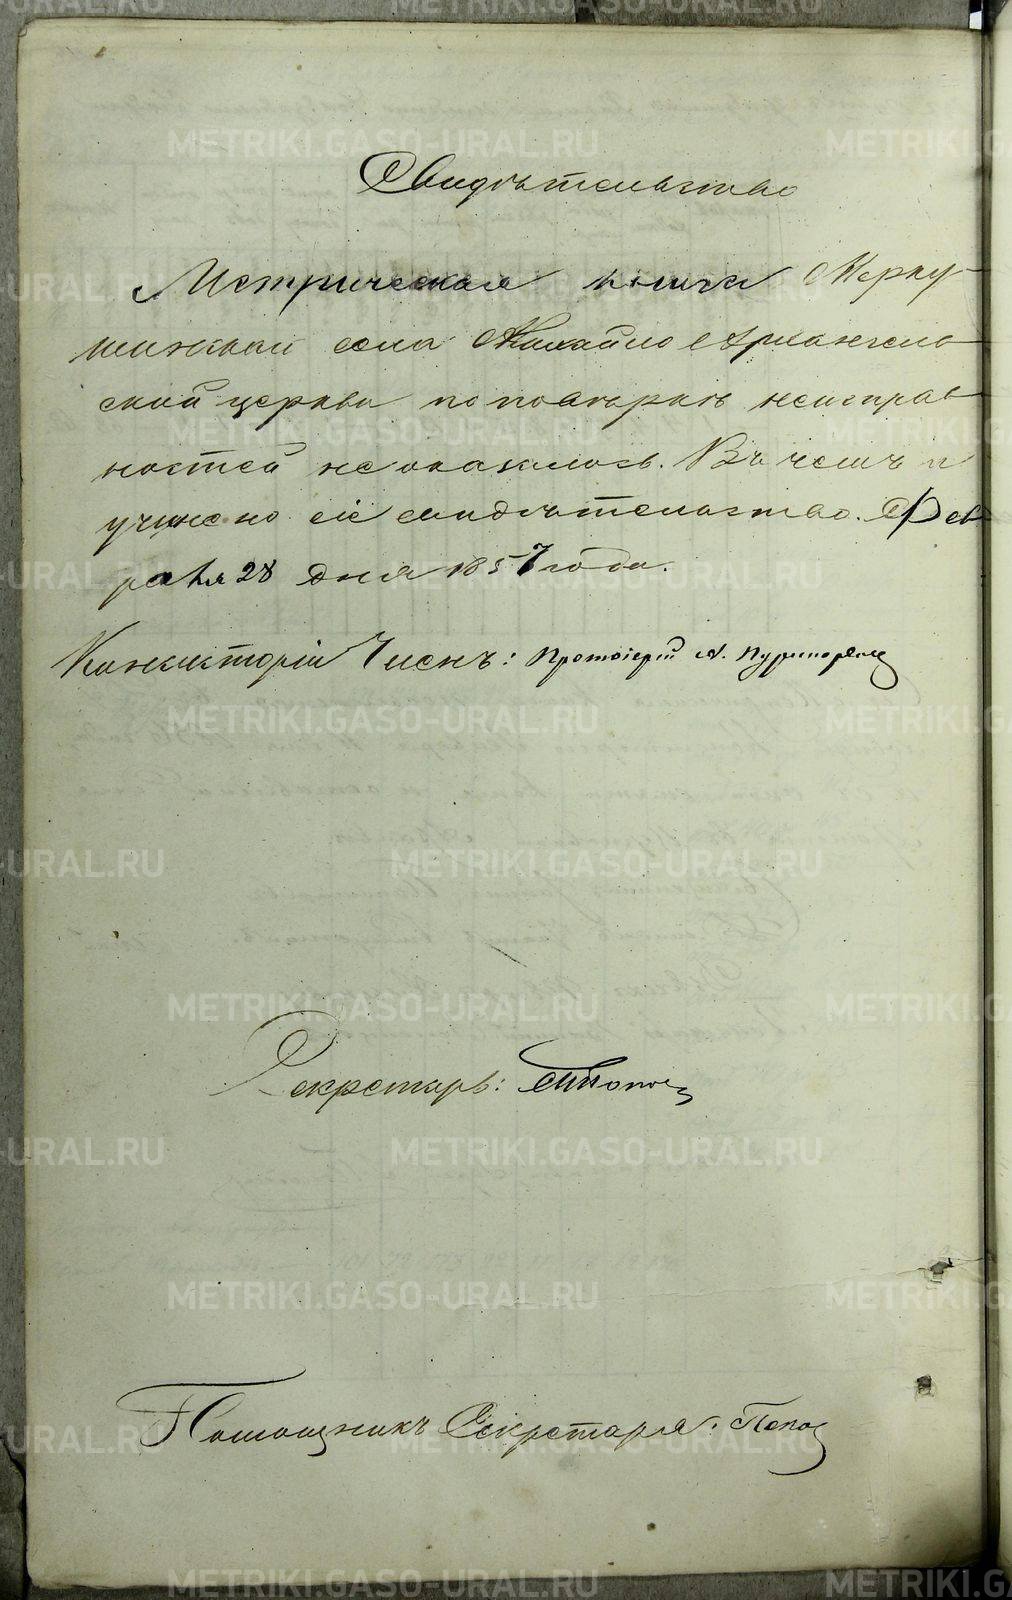 Свидѣтельство
Метрическая книга Мерку-
шинской села Михайло Архангель-
ской церкви по повѣркѣ неисправ-
ностей не оказалось. Въ чемъ и
учинено сіе свидѣтельство. Фев-
раля 28 дня 1857 года.
Консисторіи Членъ: Протоіерей А.
Секретарь: Попов
Помощникъ Секретаря: Попов
METRIKI.GASO-URAL.RU